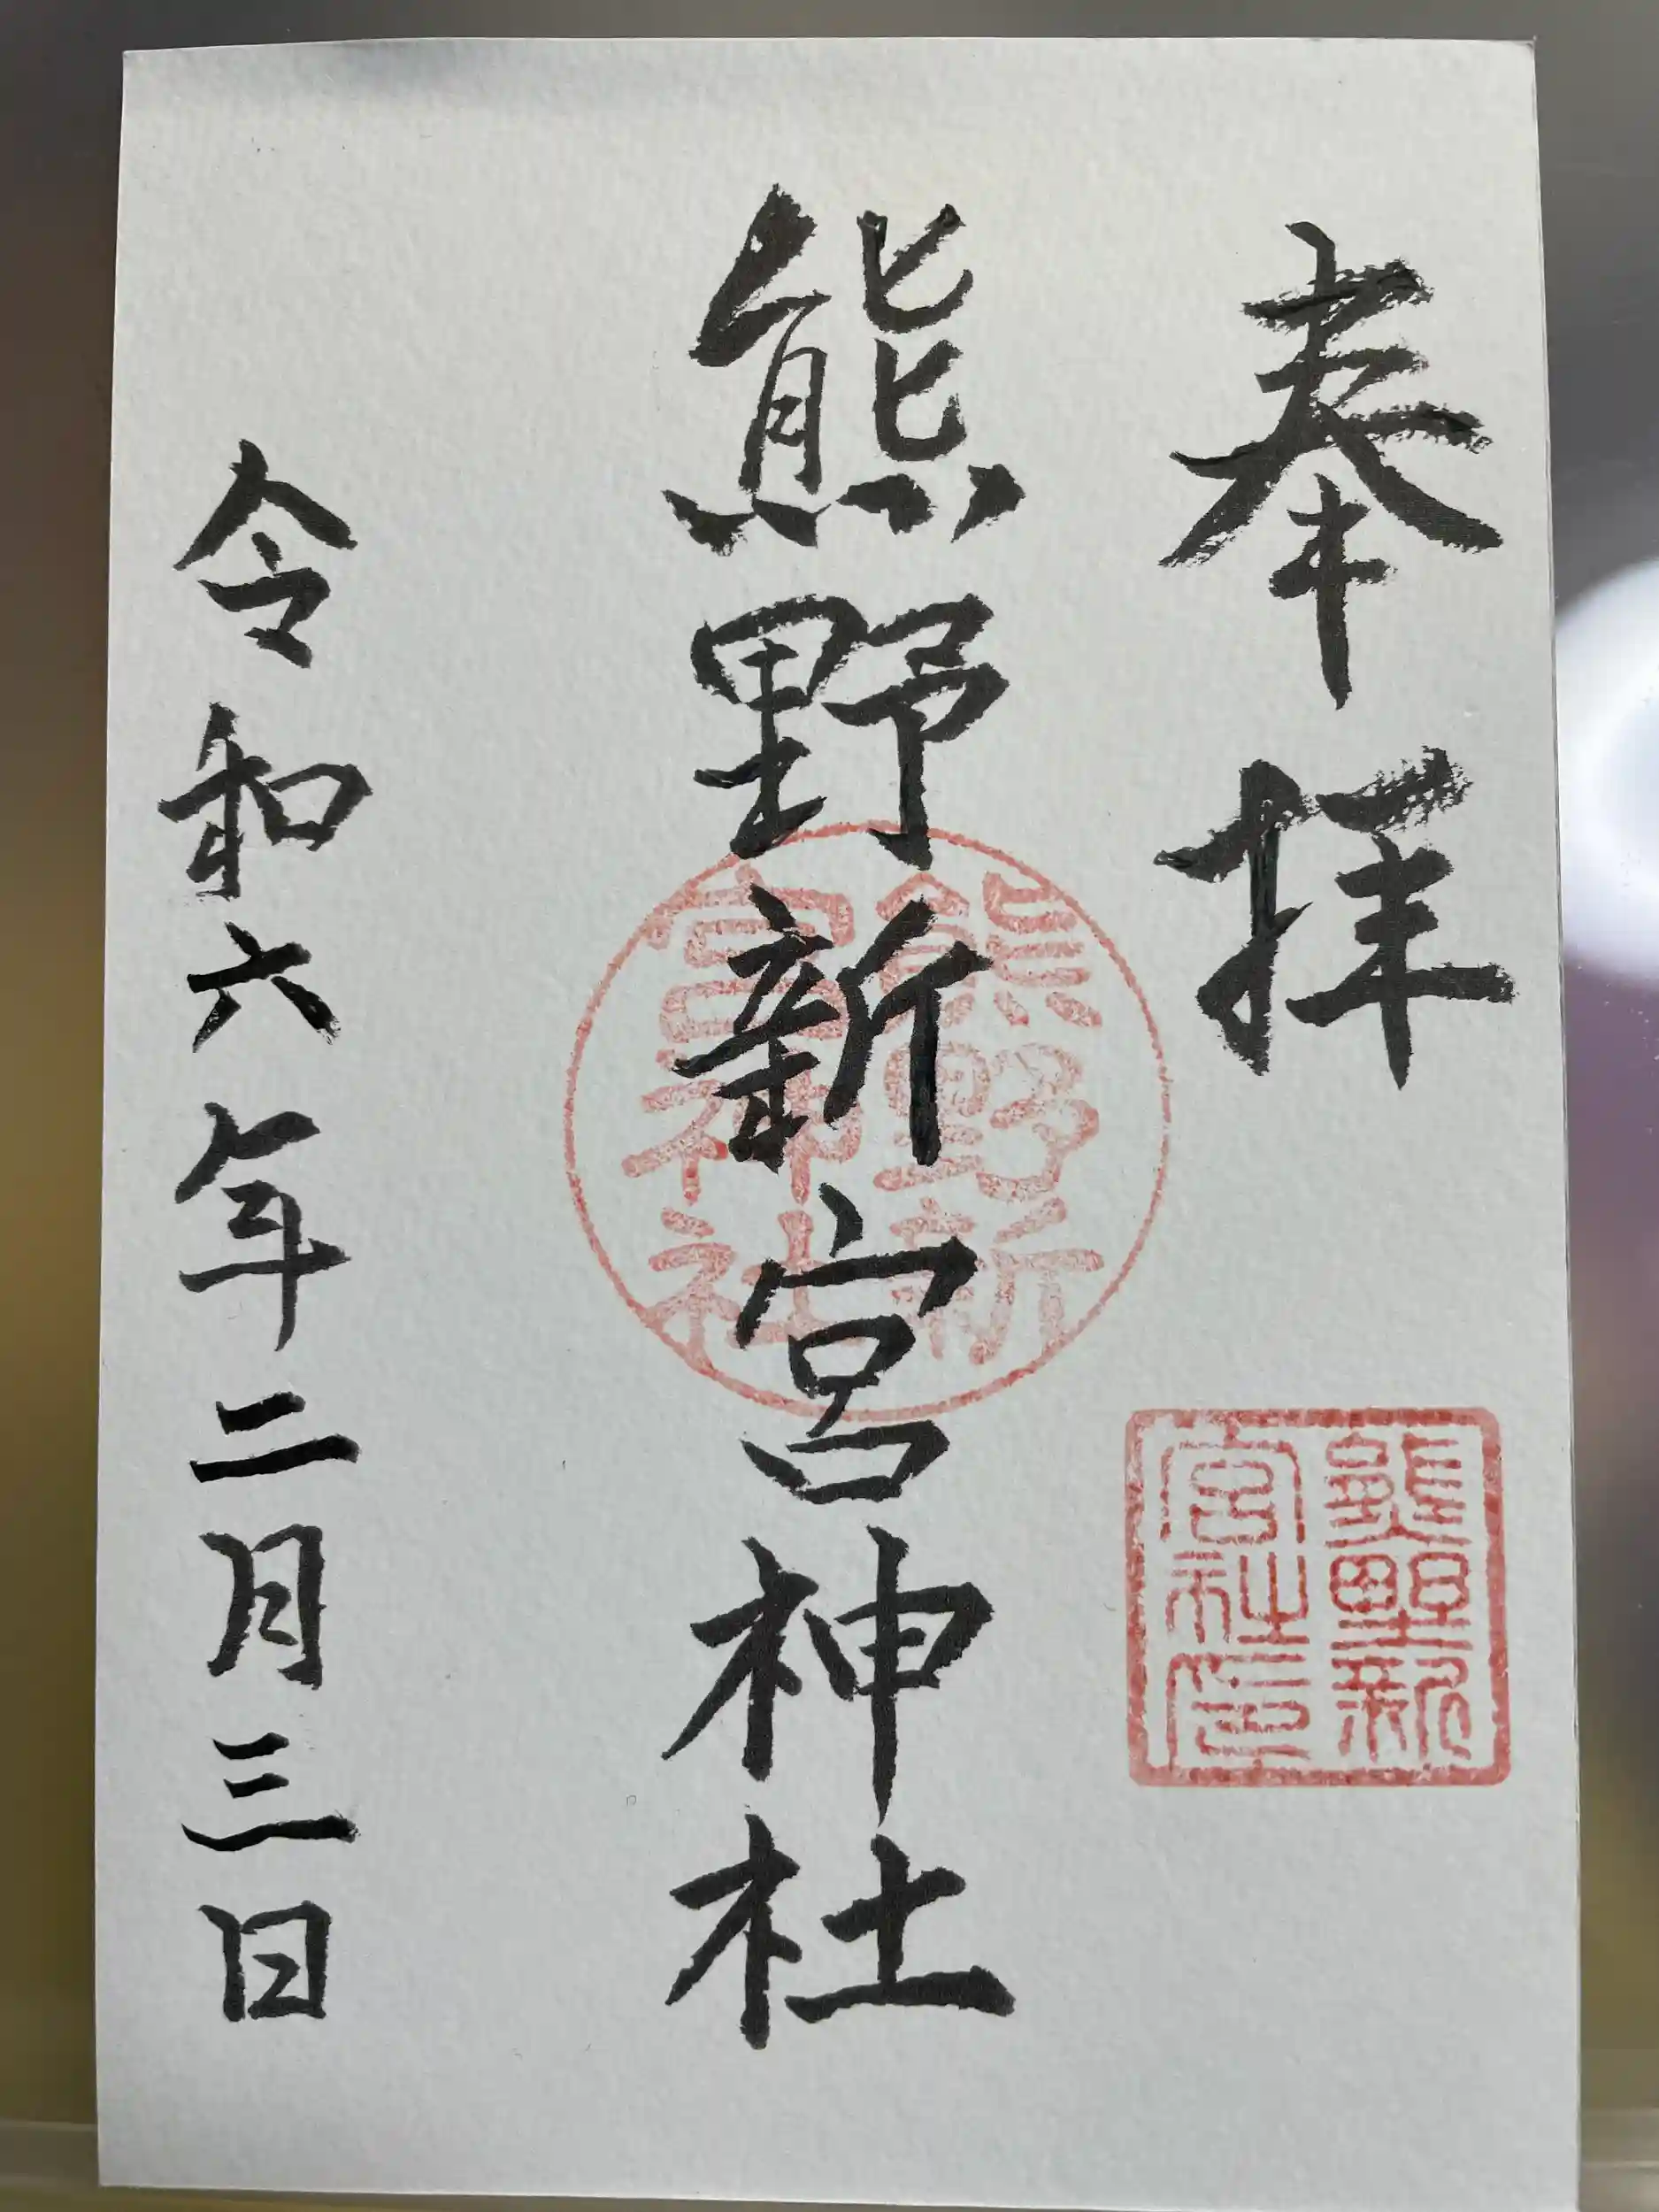 奉拝
熊野新宮神社
令和六年二月三日
熊野新
宮神社
熊野新
宮社印